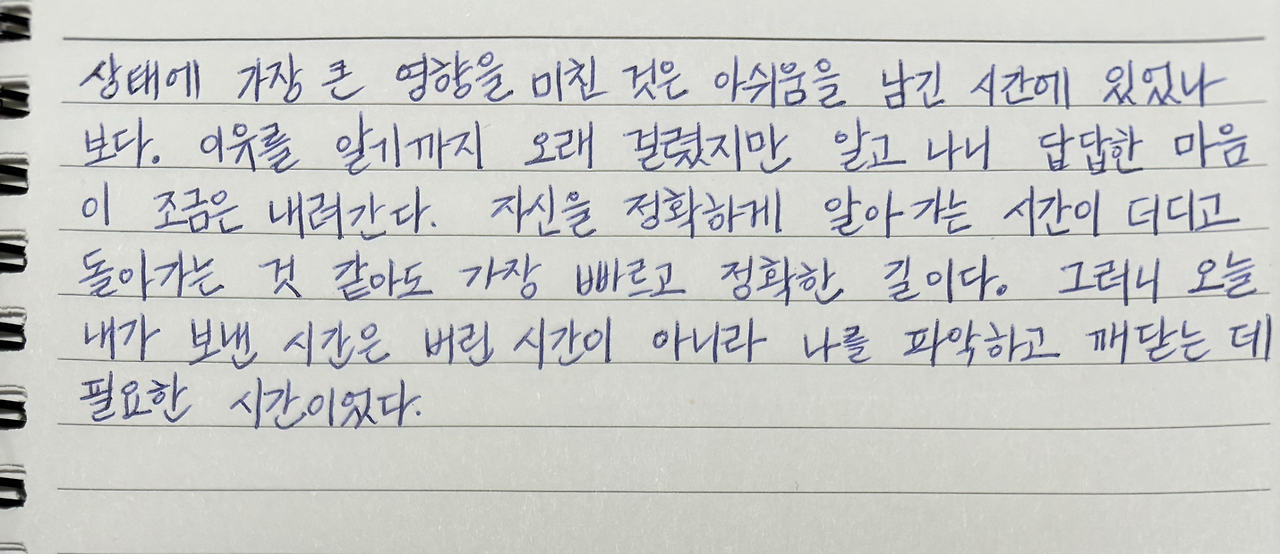 상태에 가장 큰 영향을 미친 것은 아쉬움을 남긴 시간에 있었나
보다. 이유를 알기까지 오래 걸렸지만 알고 나니 답답한 마음
이 조금은 내려간다. 자신을 정확하게 알아가는 시간이 더디고
돌아가는 것 같아도 가장 빠르고 정확한 길이다. 그러니 오늘
내가 보낸 시간은 버린 시간이 아니라 나를 파악하고 깨닫는 데
필요한 시간이었다.